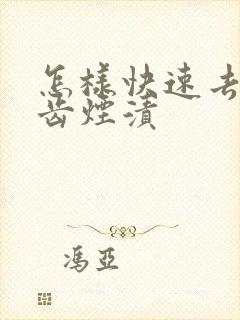 怎樣快速去
齒煙漬
馮亞